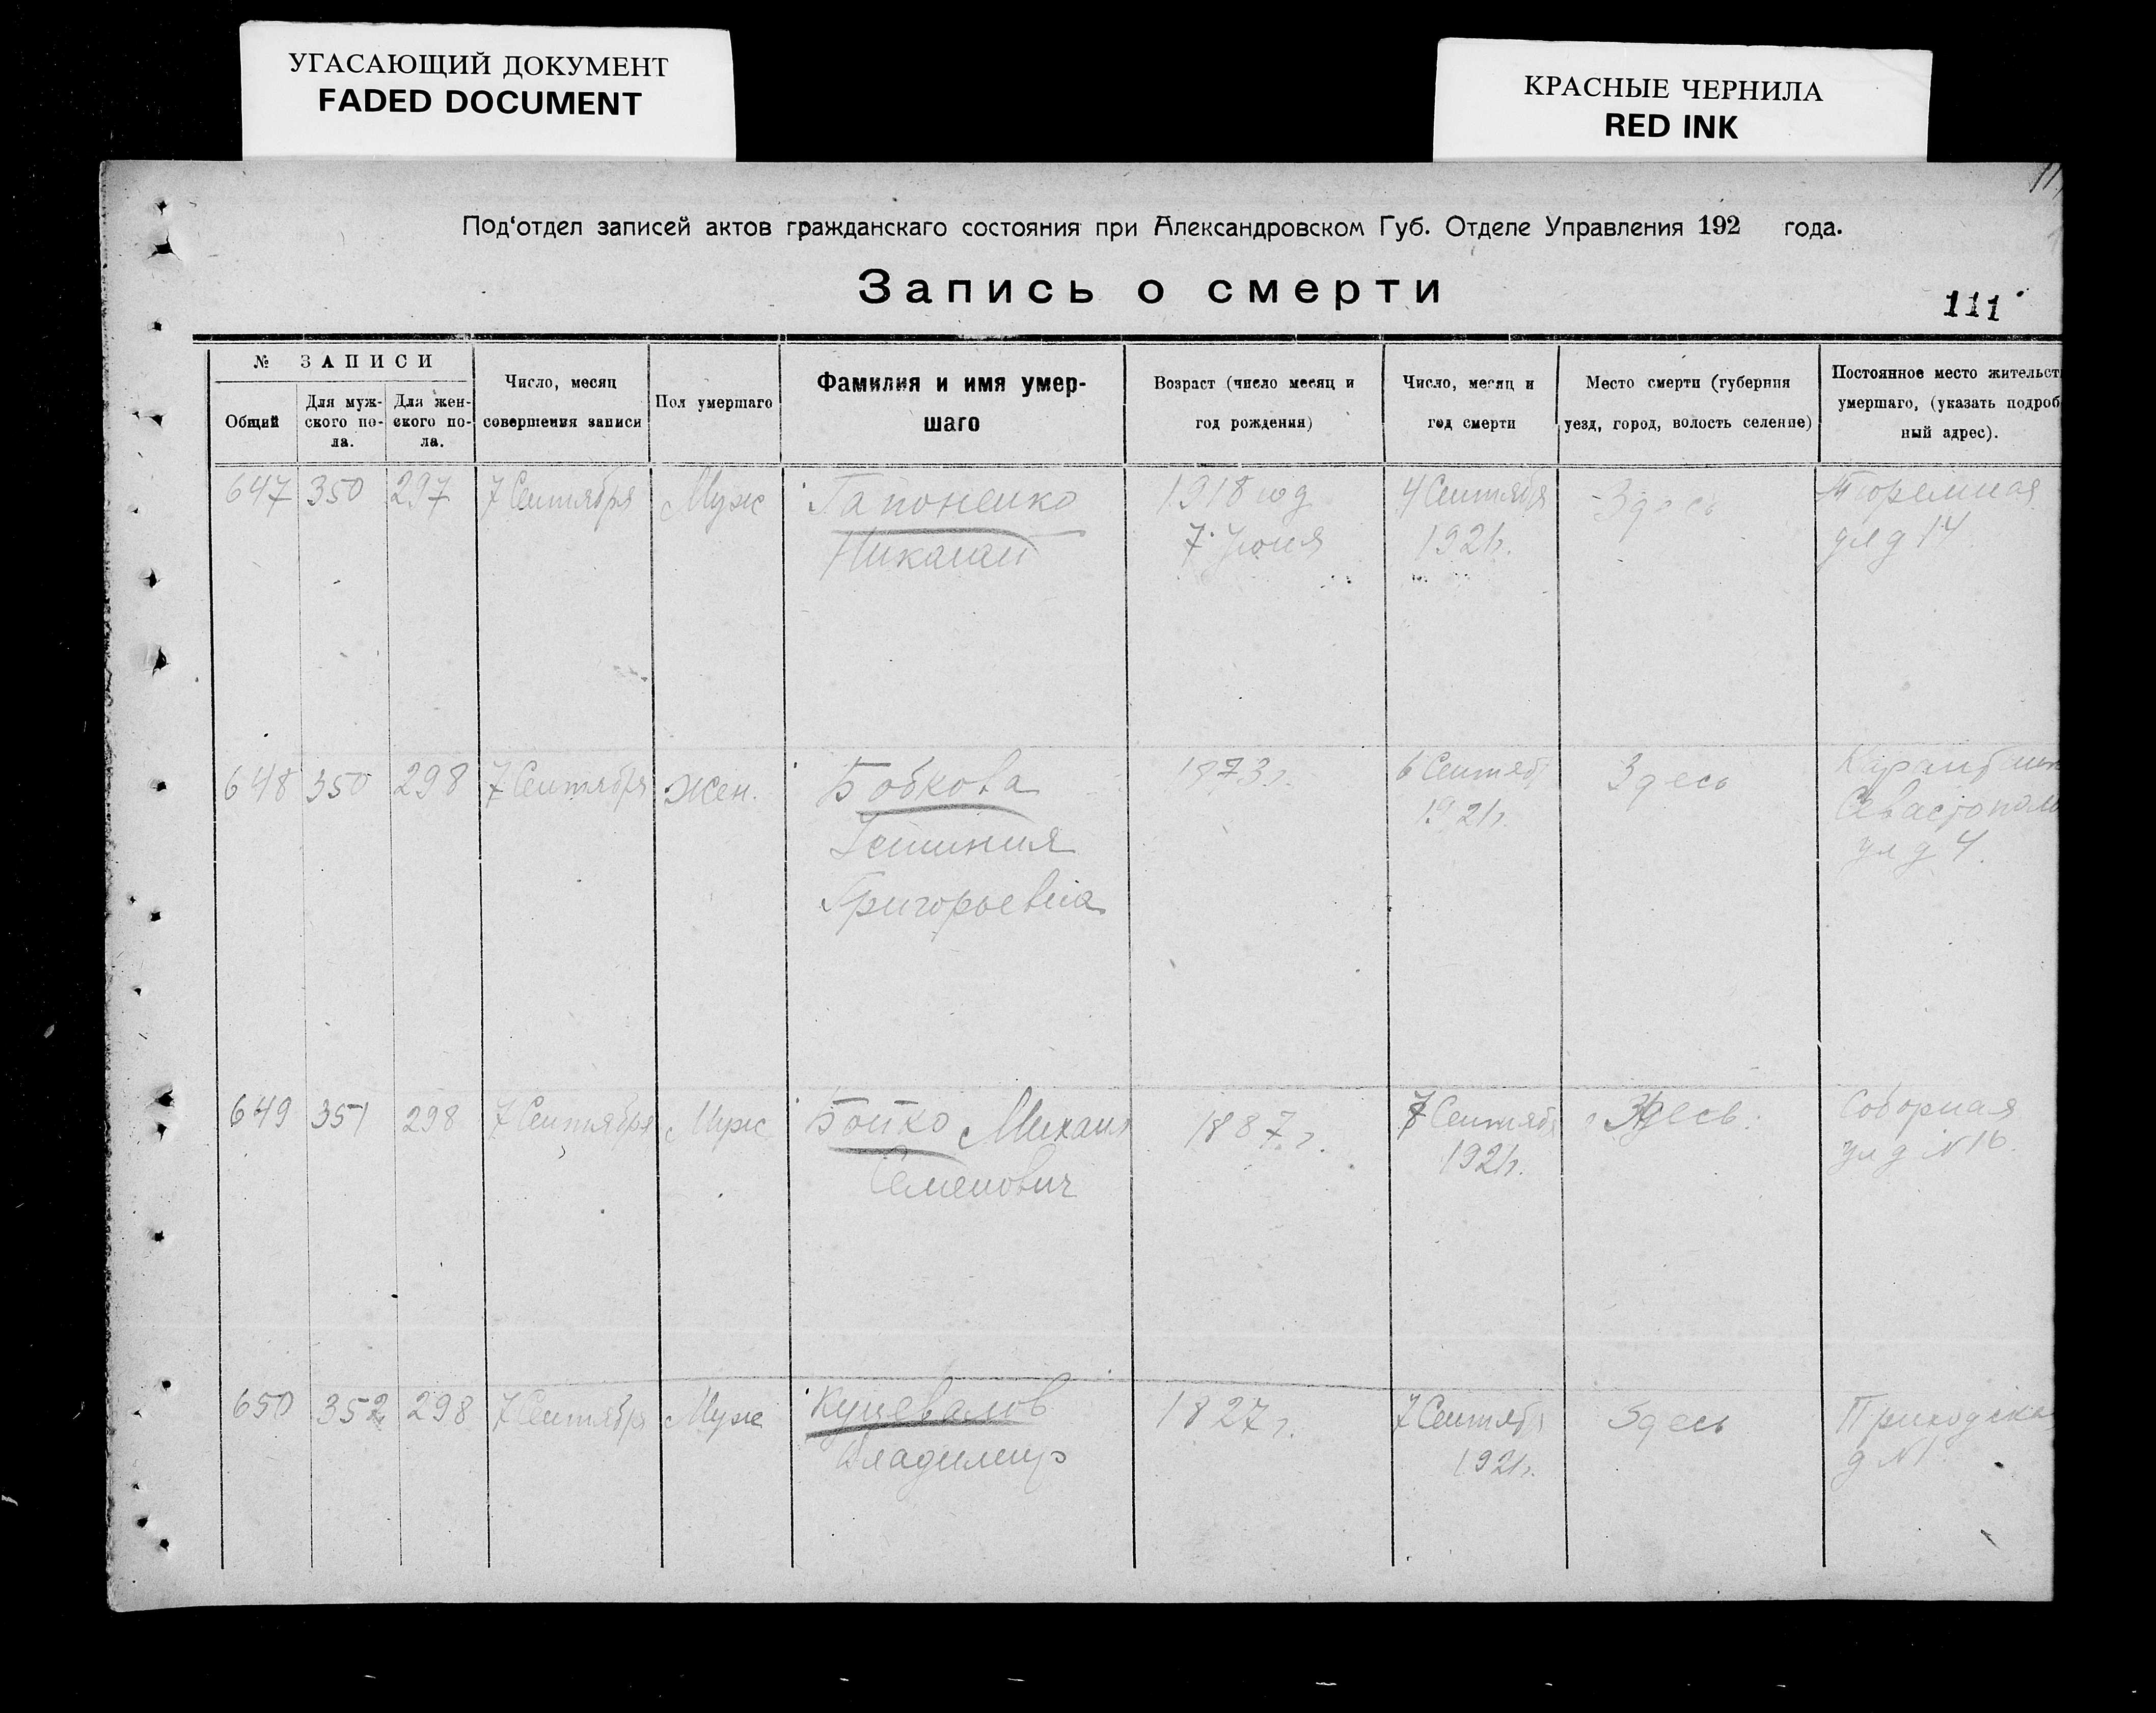 УГАСАЮЩИЙ ДОКУМЕНТ
FADED DOCUMENT
КРАСНЫЕ ЧЕРНИЛА
RED INK
Под‘отдел записей актов гражданскаго состояния при Александровском Губ. Отделе Управления 192 года.
Запись о смерти
111
№ ЗАПИСИ
Общий
Для муж-
ского по-
ла.
Для жен-
ского по-
ла.
Число, месяц
совершения записи
Пол умершаго
Фамилия и имя умер-
шаго
Возраст (число месяц и
год рождения)
Число, месяц и
год смерти
Место смерти (губерния
уезд, город, волость селение)
Постоянное место жительст
умершаго, (указать подроб-
ный адрес).
647 350 297 7 Сентября Муж Гапоненко 1918 год 4 Сентября Здесь Тюремная
Николай 7 Июня 1921г. ул д 14
648 350 298 7 Сентября Жен. Бобкова 1873г. 6 Сентяб Здесь
1921г. Севастополь
Устиния ул д 4.
Григорьевна
649 351 298 7 Сентября Муж Бойко Михаил 1887.г. 7 Сентяб Здесь. Соборная
Семенович 1921г. ул д N 16.
650 352 298 7 Сентября Муж 1827г. 7 Сентяб Здесь Приходска
Владимир 1921г. д N 1